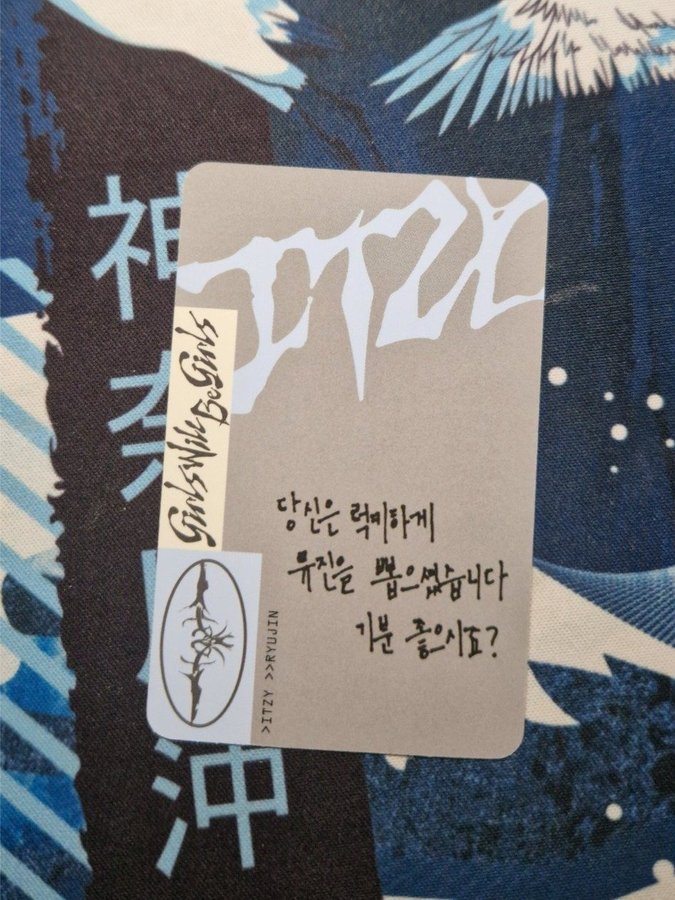 ITZY
Girls Will Be Girls
당신은 럭키하게
류진을 뽑으셨습니다
기분 좋으시죠?
>ITZY >>RYUJIN
神
奈
沖